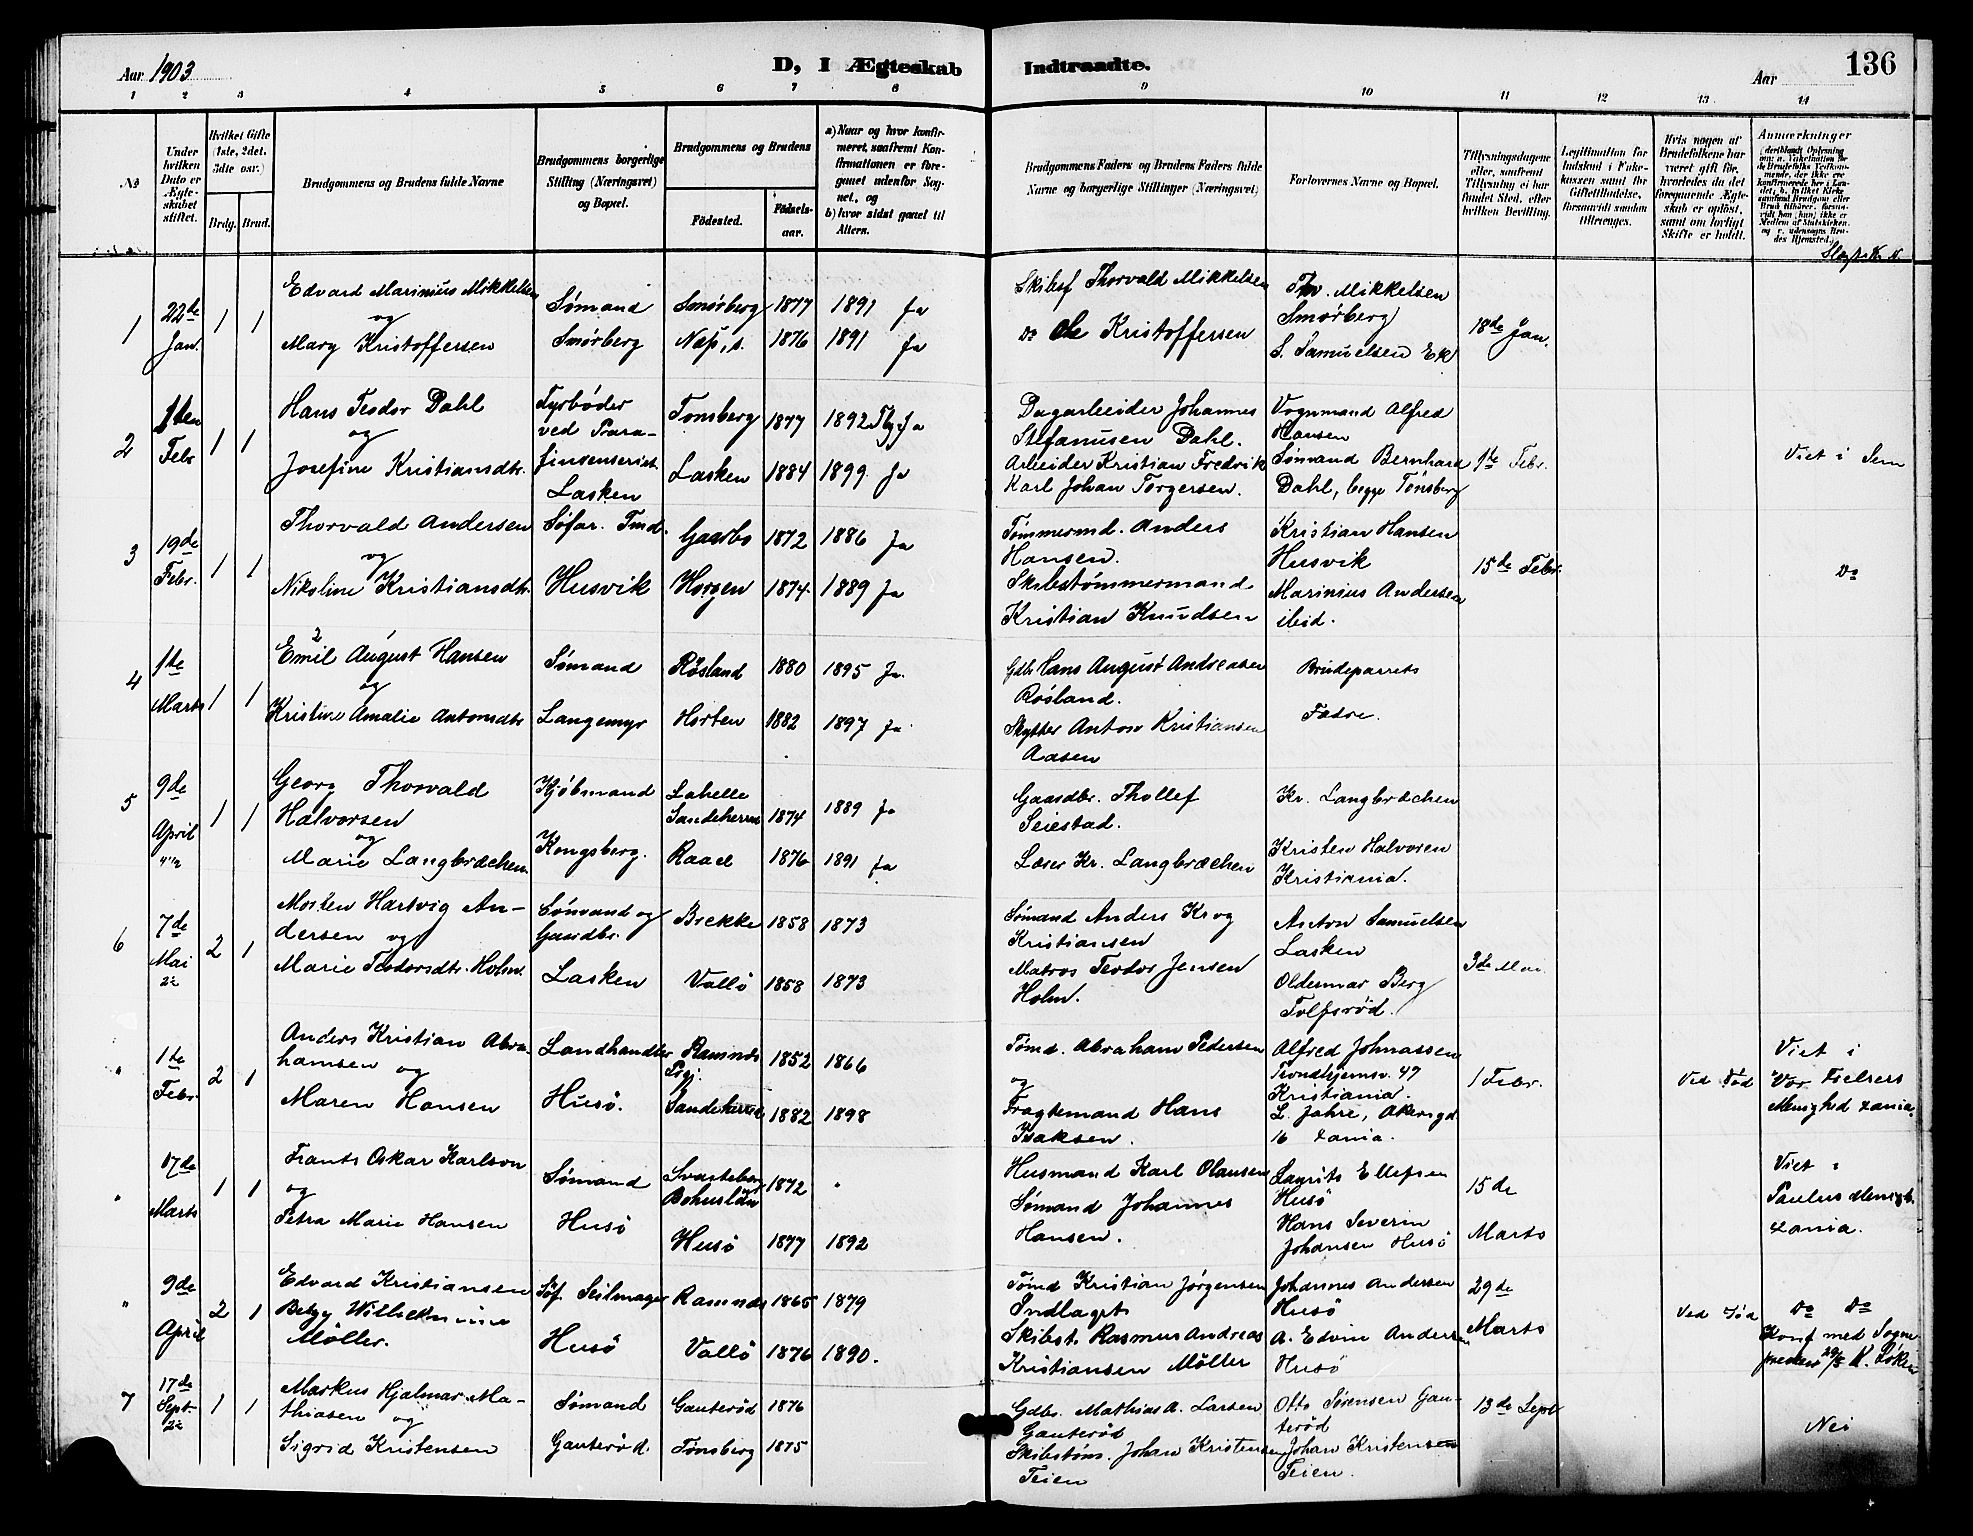 Aar 1903
D, I Ægteskab Indtraadte.
Aar
136
1 2 3 4 5 6 7 8 9 10 11 12 13 14
No
Under hvilken Dato er Ægteskabet stiftet.
Hvilket Gifte (1ste, 2det, 3die osv.)
Brdg. Brud.
Brudgommens og Brudens fulde Navne
Brudgommens borgerlige Stilling (Næringsvei) og Bopæl.
Brudgommens og Brudens
Fødested.
Fødselsaar.
a) Naar og hvor konfirmeret, saafremt Konfirmationen er foregaaet udenfor Sognet, og
b) hvor sidst gaaet til Alters.
Brudgommens Faders og Brudens Faders fulde Navne og borgerlige Stillinger (Næringsvei)
Forlovernes Navne og Bopæl.
Tillysningsdagene eller, saafremt Tillysning ei har fundet Sted, efter hvilken Bevilling.
Legitimation for Indskud i Enkekassen samt for Giftetilladelse, forsaavidt saadan tiltrænges.
Hvis nogen af Brudefolkene har været gift før, hvorledes da det foregaaende Ægteskab er opløst, samt om lovligt Skifte er holdt.
Anmærkninger
1
22de Jan.
1 1
Edvard Marinius Mikkelsen
og
Mary Kristoffersen
Sømand
Smørberg
Smørberg 1877 1891 Ja
Nøt. 1876 1891 Ja
Skibsf Thorvald Mikkelsen
Do Ole Kristoffersen
Thv. Mikkelsen
Smørberg
S. Samuelsen Ek
18de Jan.
2
1ste Febr
1 1
Hans Teodor Dahl
og
Josefine Kristiansdtr.
Fyrbøder
ved Para-
finsenseriet
Lasken
Tønsberg 1877 1892 Tbg. Ja
Lasken 1884 1899 Ja
Dagarbeider Johannes
Stefanusen Dahl.
Arbeider Kristian Fredrik
Karl Johan Torgersen.
Vognmand Alfred
Hansen
Sømand Bernhard
Dahl, begge Tønsberg
1ste Febr.
Viet i Sem
3
19de Febr.
1 1
Thorvald Andersen
og
Nikoline Kristiansdtr.
Søfar. Tmd.
Husvik
Gaarbo 1872 1886 Ja
Horgen 1874 1889 Ja
Tømmermd. Anders
Hansen.
Skibstømmermand
Kristian Knudsen
Kristian Hansen
Husvik
Marinius Andersen
ibid.
15de Febr.
Do
4
1ste Marts
1 1
Emil August Hansen
og
Kristine Amalie Antonsdtr
Sømand
Langemyr
Røsland 1880 1895 Ja
Horten 1882 1897 Ja
Gdb. Hans August Andreasen
Røsland.
Skytter Anton Kristiansen
Aasen
Brudeparrets
Fædre.
5
9de April
1 1
Georg Thorvald
Halvorsen
og
Marie Langbrækken
Kjøbmand
Kongsberg.
Lahelle
Sandeherred 1874 1889 Ja
Raael 1876 1891 Ja
Gaardbr. Thollef
Seiestad.
Læser Kr. Langbrækken
Kr. Langbrækken
Kristen Halvorsen
Kristiania.
6
7de Mai
2 1
Morten Hartvig An-
dersen og
Marie Teodorsdtr. Holm.
Sømand og
Gaardbr.
Lasken
Brekke 1858 1873
Vallø 1858 1873
Sømand Anders Krog
Kristiansen
Matros Teodor Jensen
Holm.
Anton Samuelsen
Lasken
Oldermar Berg
Tolfsrød.
3de Mai
"
1ste Febr.
2 1
Anders Kristian Abra-
hamsen og
Maren Hansen
Landhandler
Husø.
Ramnes
Prg: 1852 1866
Sandeherred 1882 1898
Tømd. Abraham Pedersen
og
Fragtemand Hans
Isaksen.
Alfred Johnassen
Trondhjemsv. 47
Kristiania.
L. Jahre, Akersgd
16 Xania.
1 Febr.
Ved Død
Viet i
Vor Frelsers
Menighed Xania.
"
17de Marts
1 1
Frants Oskar Karlson
og
Petra Marie Hansen
Sømand
Husø
Svarteborg
Bohuslän 1872 "
Husø 1877 1892
Husmand Karl Olausen
Sømand Johannes
Hansen.
Laurits Ellefsen
Husø
Hans Severin
Johansen Husø
15de
Marts
Viet i
Paulus Menigh.
Xania.
"
9de April
2 1
Edvard Kristiansen
Betzy Wilhelmine
Möller.
Søf. Seilmager
Husø
Ramnes 1865 1879
Vallø 1876 1890.
Tømd Kristian Jørgensen
Indlaget
Skibst. Rasmus Andreas
Kristiansen Möller
Johannes Andersen
Husø
A. Edvin Andersen
Husø
29de
Marts
Ved Død
Do Do
Konf med Sogne-
presten 29/5
7
17de Sept.
1 1
Markus Hjalmar Ma-
thiasen og
Sigrid Kristensen
Sømand
Gauterød.
Gauterød 1876
Tønsberg 1875
Gdbr. Mathias A. Larsen
Gauterød
Skibstøm. Johan Kristensen
Teien
Otto Sørensen Gau-
terød
Johan Kristensen
Teien.
13de Sept
Nei